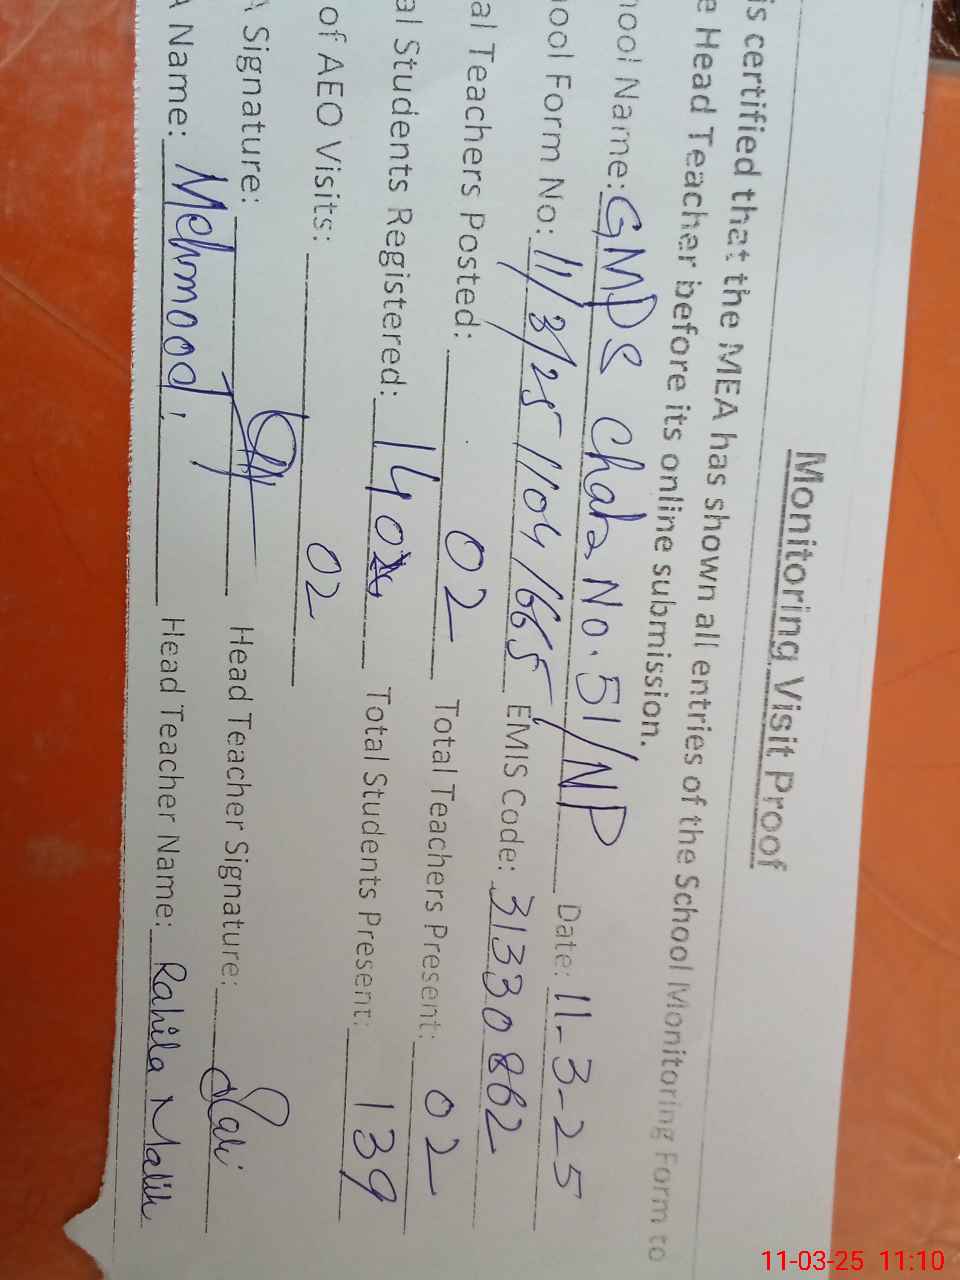 Monitoring Visit Proof
is certified that the MEA has shown all entries of the School Monitoring Form to
e Head Teacher before its online submission.
hool Name: GMPS Chak No. 51/NP Date: 11-3-25
ool Form No: 11/3/25/1104/665/ EMIS Code: 31330862
al Teachers Posted: 02 Total Teachers Present: 02
al Students Registered: 140 Total Students Present: 139
of AEO Visits: 02
A Signature: Head Teacher Signature:
A Name: Mehmood Head Teacher Name: Rahila Malik
11-03-25 11:10